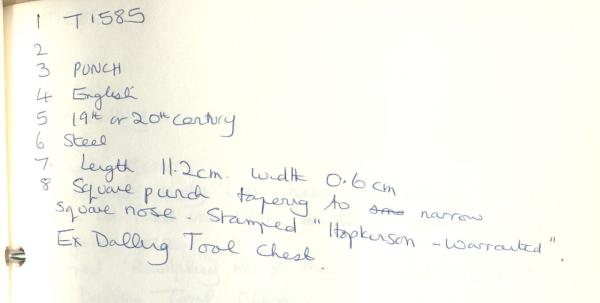 1 T1585
2
3 PUNCH
4 English
5 19th or 20th Century
6 Steel
7. Length 11.2cm. width 0.6cm
8 Square punch tapering to narrow
square nose. Stamped "Hopkinson - Warranted".
Ex Dalling Tool Chest.